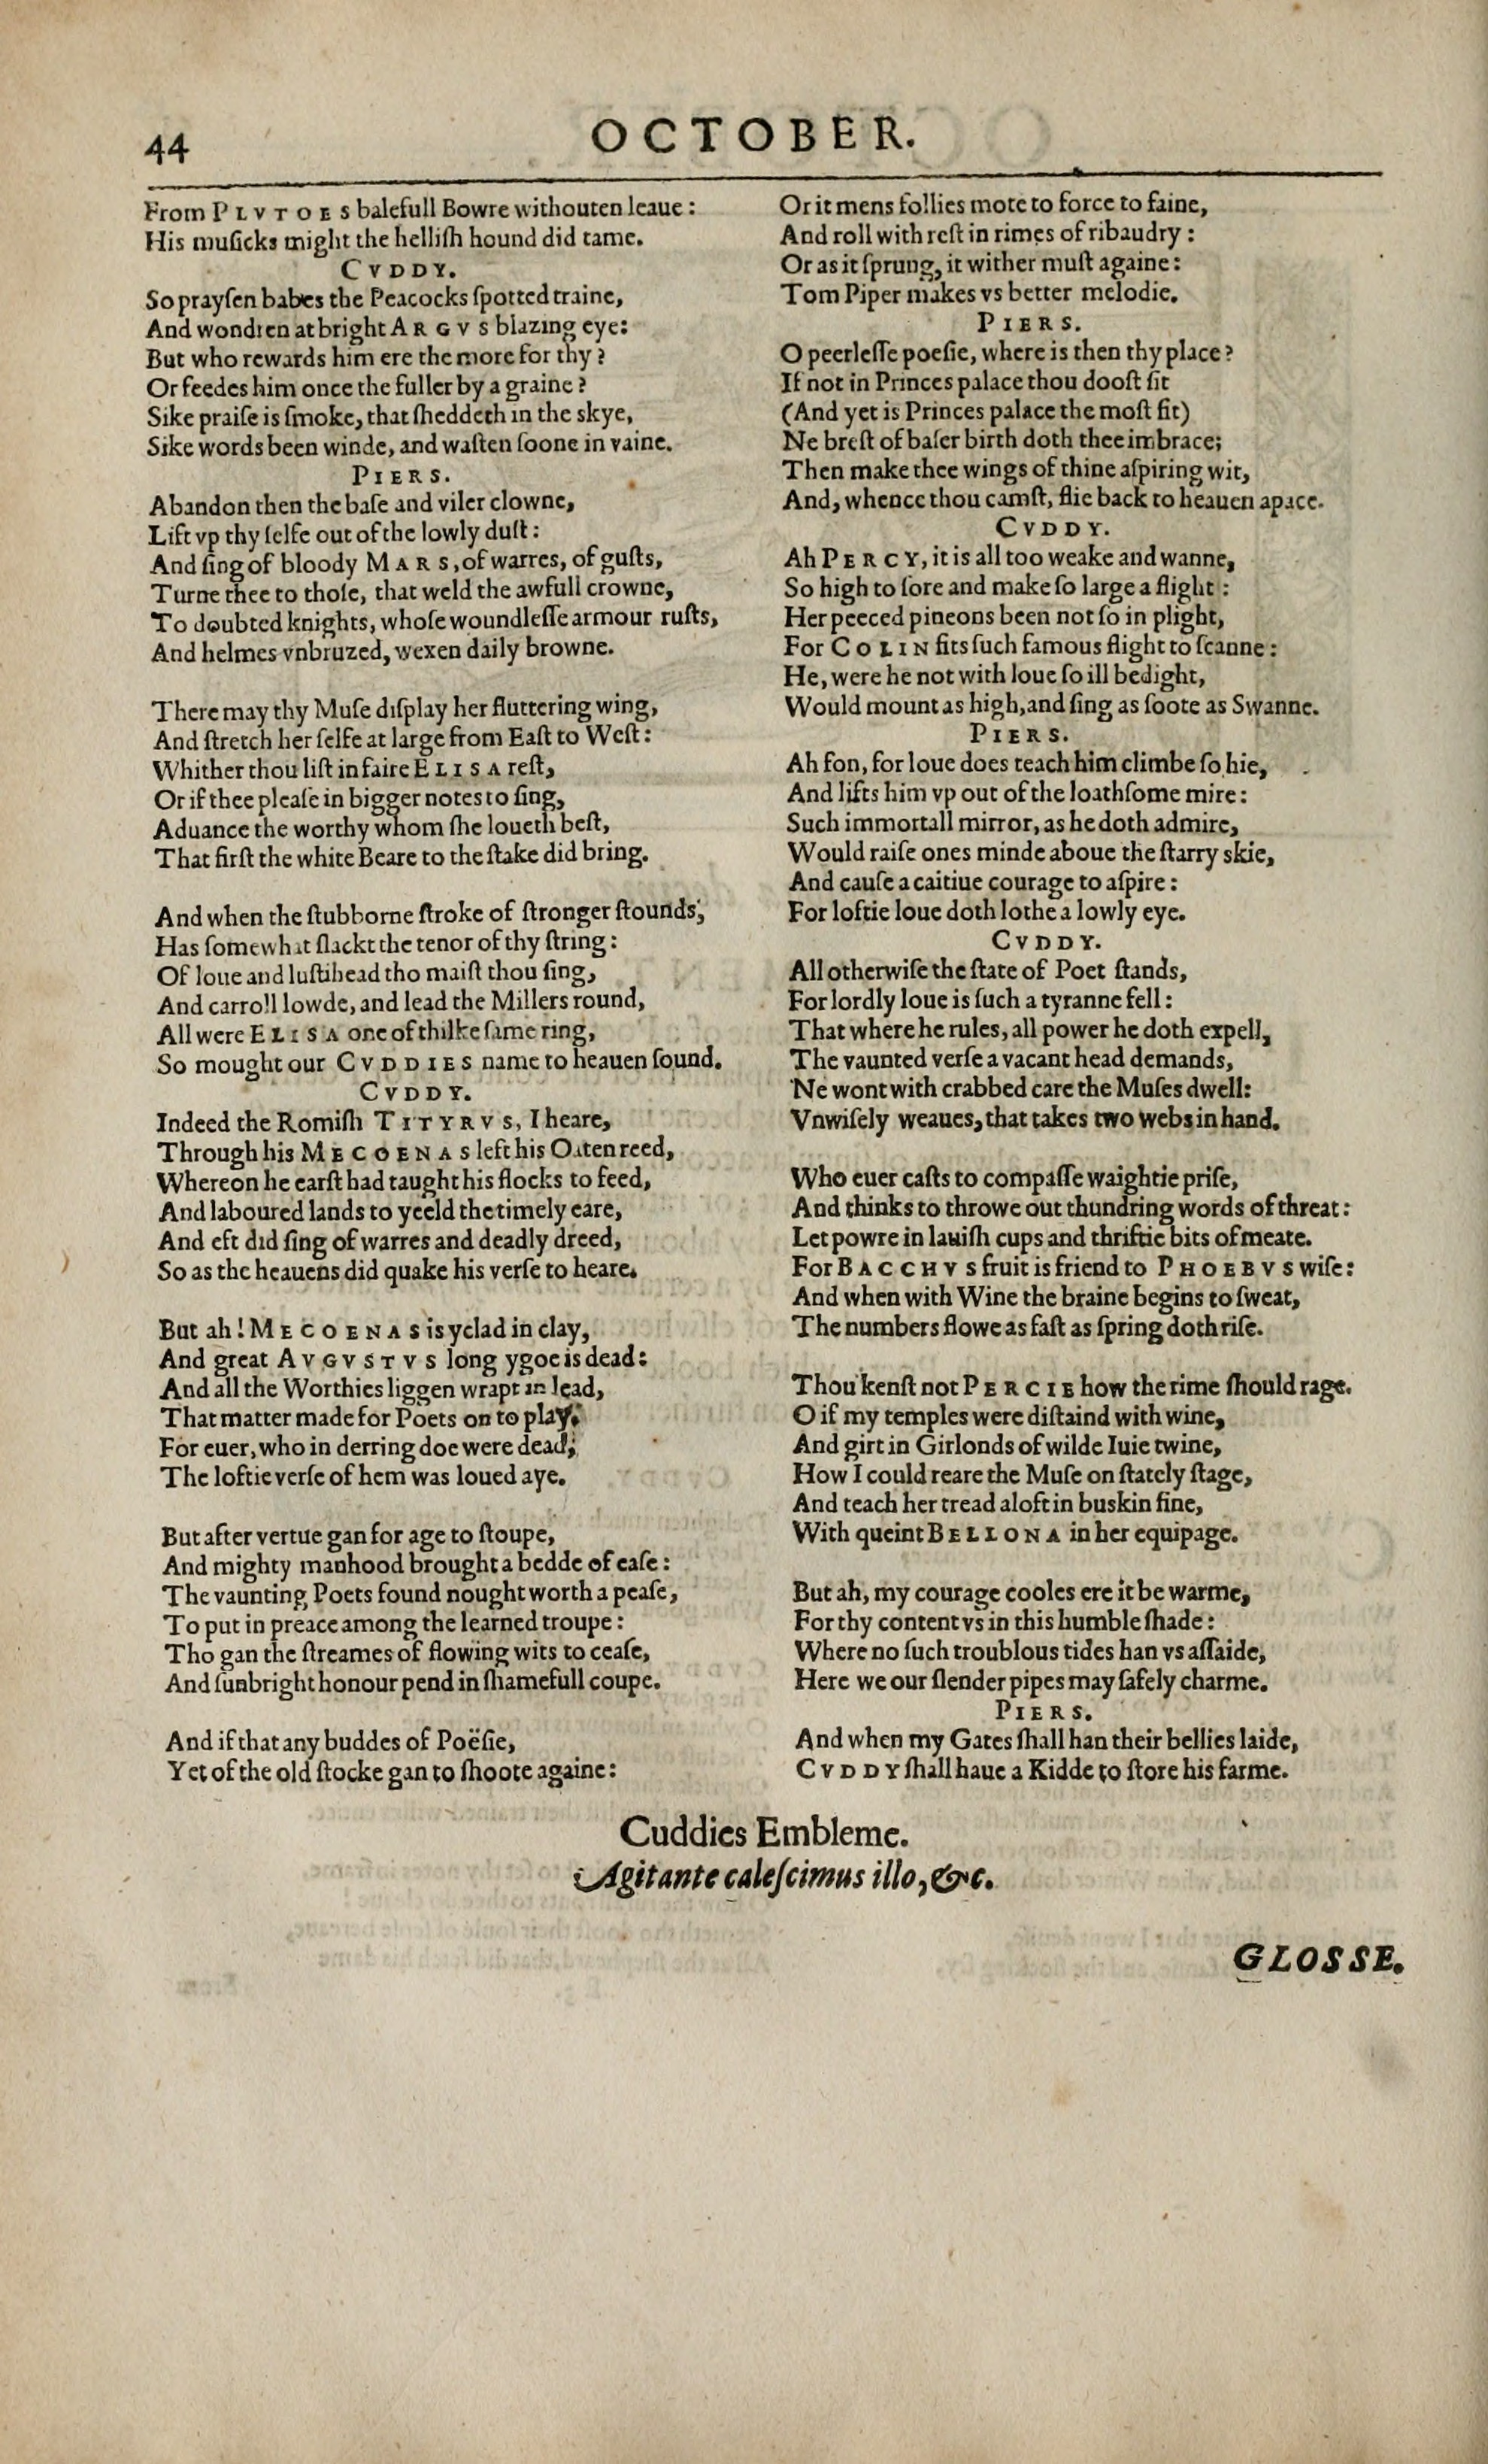 44
OCTOBER.
From PLVTOES balefull Bowre withouten leaue:
His muſicks might the helliſh hound did tame.
CVDDY.
So prayſen babes the Peacocks ſpotted traine,
And wondren at bright ARGVS blazing eye:
But who rewards him ere the more for thy?
Or feedes him once the fuller by a graine?
Sike praiſe is ſmoke, that ſheddeth in the skye,
Sike words been winde, and waſten ſoone in vaine.
PIERS.
Abandon then the baſe and viler clowne,
Lift vp thy ſelfe out of the lowly duſt:
And ſing of bloody MARS, of warres, of guſts,
Turne thee to thoſe, that weld the awfull crowne,
To doubted knights, whoſe woundleſſe armour ruſts,
And helmes vnbruzed, wexen daily browne.
There may thy Muſe diſplay her fluttering wing,
And ſtretch her ſelfe at large from Eaſt to Weſt:
Whither thou liſt in faire ELISA reſt,
Or if thee pleaſe in bigger notes to ſing,
Aduance the worthy whom ſhe loueth beſt,
That firſt the white Beare to the ſtake did bring.
And when the ſtubborne ſtroke of ſtronger ſtounds,
Has ſomewhat ſlackt the tenor of thy ſtring:
Of loue and luſtihead tho maiſt thou ſing,
And carroll lowde, and lead the Millers round,
All were ELISA one of thilke ſame ring,
So mought our CVDDIES name to heauen ſound.
CVDDY.
Indeed the Romiſh TITYRVS, I heare,
Through his MECOENAS left his Oaten reed,
Whereon he earſt had taught his flocks to feed,
And laboured lands to yeeld the timely eare,
And eft did ſing of warres and deadly dreed,
So as the heauens did quake his verſe to heare.
But ah! MECOENAS is yclad in clay,
And great AVGVSTVS long ygoe is dead:
And all the Worthies liggen wrapt in lead,
That matter made for Poets on to play:
For euer, who in derring doe were dead,
The loftie verſe of hem was loued aye.
But after vertue gan for age to ſtoupe,
And mighty manhood brought a bedde of eaſe:
The vaunting Poets found nought worth a peaſe,
To put in preace among the learned troupe:
Tho gan the ſtreames of flowing wits to ceaſe,
And ſunbright honour pend in ſhamefull coupe.
And if that any buddes of Poëſie,
Yet of the old ſtocke gan to ſhoote againe:
Or it mens follies mote to force to faine,
And roll with reſt in rimes of ribaudry:
Or as it ſprung, it wither muſt againe:
Tom Piper makes vs better melodie.
PIERS.
O peerleſſe poeſie, where is then thy place?
If not in Princes palace thou dooſt ſit
(And yet is Princes palace the moſt fit)
Ne breſt of baſer birth doth thee imbrace;
Then make thee wings of thine aſpiring wit,
And, whence thou camſt, flie back to heauen apace.
CVDDY.
Ah PERCY, it is all too weake and wanne,
So high to ſore and make ſo large a flight:
Her peeced pineons been not ſo in plight,
For COLIN fits ſuch famous flight to ſcanne:
He, were he not with loue ſo ill bedight,
Would mount as high, and ſing as ſoote as Swanne.
PIERS.
Ah fon, for loue does teach him climbe ſo hie,
And lifts him vp out of the loathſome mire:
Such immortall mirror, as he doth admire,
Would raiſe ones minde aboue the ſtarry skie,
And cauſe a caitiue courage to aſpire:
For loftie loue doth lothe a lowly eye.
CVDDY.
All otherwiſe the ſtate of Poet ſtands,
For lordly loue is ſuch a tyranne fell:
That where he rules, all power he doth expell,
The vaunted verſe a vacant head demands,
Ne wont with crabbed care the Muſes dwell:
Vnwiſely weaues, that takes two webs in hand.
Who euer caſts to compaſſe waightie priſe,
And thinks to throwe out thundring words of threat:
Let powre in lauiſh cups and thriftie bits of meate.
For BACCHVS fruit is friend to PHOEBVS wiſe:
And when with Wine the braine begins to ſweat,
The numbers flowe as faſt as ſpring doth riſe.
Thou kenſt not PERCIE how the rime ſhould rage.
O if my temples were diſtaind with wine,
And girt in Girlonds of wilde Iuie twine,
How I could reare the Muſe on ſtately ſtage,
And teach her tread aloft in buskin fine,
With queint BELLONA in her equipage.
But ah, my courage cooles ere it be warme,
For thy content vs in this humble ſhade:
Where no ſuch troublous tides han vs aſſaide,
Here we our ſlender pipes may ſafely charme.
PIERS.
And when my Gates ſhall han their bellies laide,
CVDDY ſhall haue a Kidde to ſtore his farme.
Cuddies Embleme.
Agitante caleſcimus illo, &c.
GLOSSE.